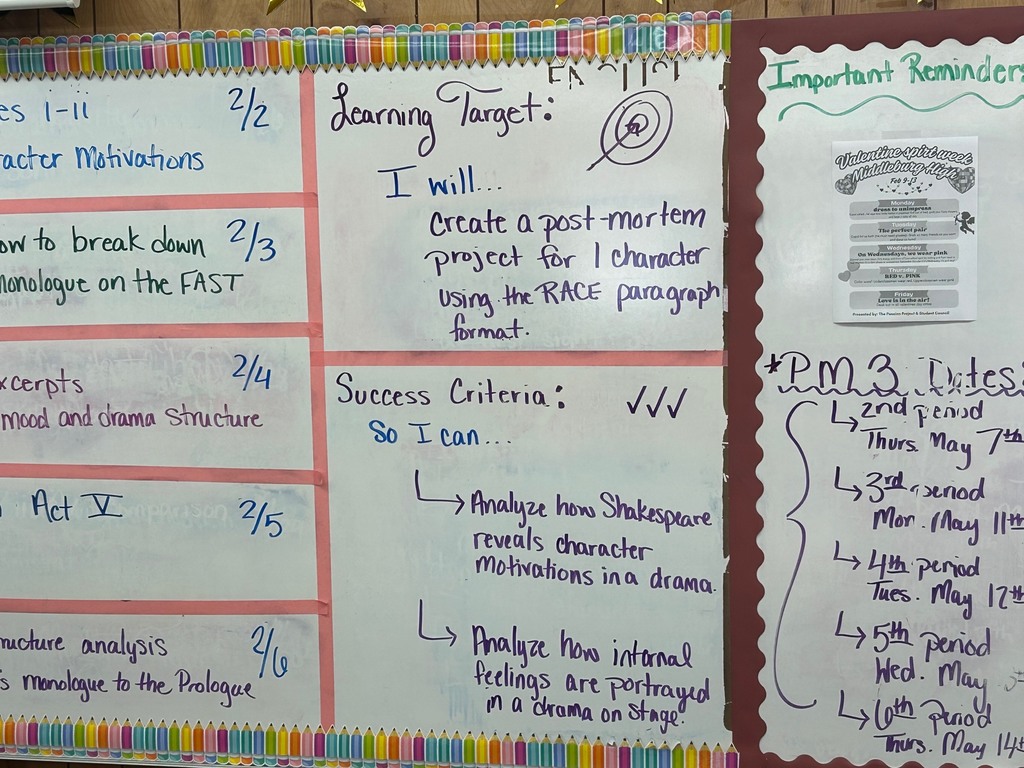 es 1-ii 2/2
racter Motivations
ow to break down 2/3
monologue on the FAST
xcerpts 2/4
mood and drama structure
Act V 2/5
ructure analysis 2/6
's monologue to the Prologue
Learning Target:
I will...
Create a post-mortem
project for 1 character
using the RACE paragraph
format.
Success Criteria:
So I can...
Analyze how Shakespeare
reveals character
motivations in a drama.
Analyze how internal
feelings are portrayed
in a drama on stage.
Important Reminders
Valentine spirt week
Middleburg High
Feb 9-13
Monday
dress to unimpress
Tuesday
The perfect pair
Wednesday
On Wednesdays, we wear pink
Thursday
RED v. PINK
Friday
Love is in the air!
Presented by: The Finesion Project & Student Council
*PM3 Dates:
2nd period
Thurs. May 7th
3rd period
Mon. May 11th
4th period
Tues. May 12th
5th period
Wed. May
6th period
Thurs. May 14th